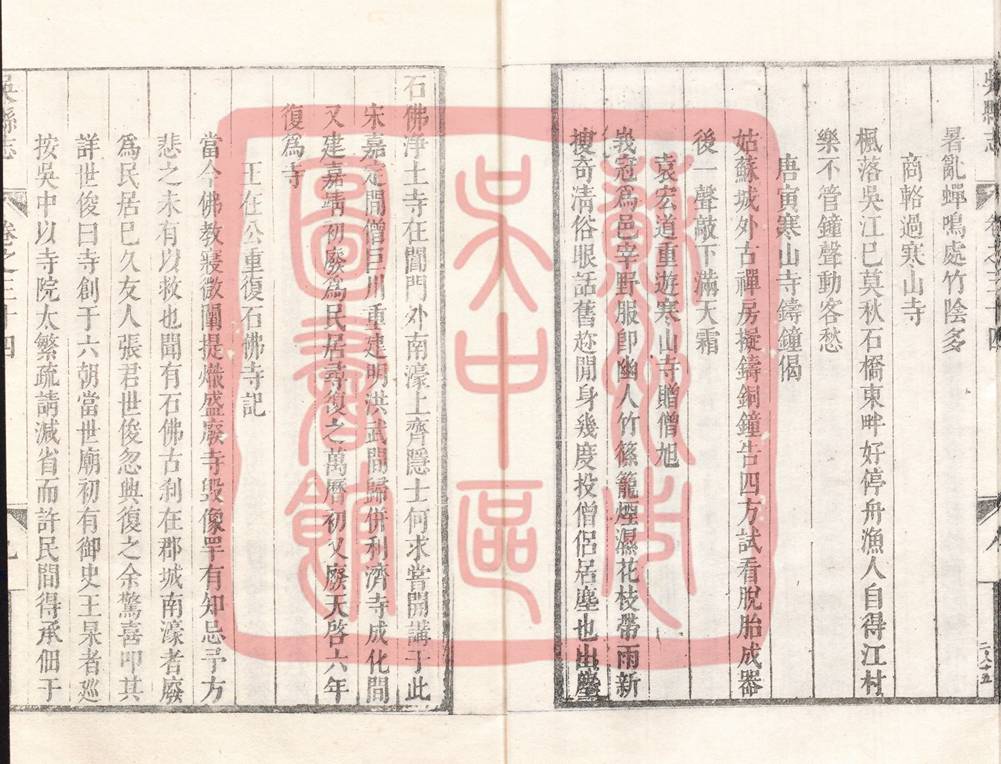 暑亂蟬鳴處竹陰多
商輅過寒山寺
楓落吳江已莫秋石橋東畔好停舟漁人自得江村
樂不管鐘聲動客愁
唐寅寒山寺鑄鐘偈
姑蘇城外古禪房擬鑄銅鐘告四方試看脫胎成器
後一聲敲下滿天霜
袁宏道重遊寒山寺贈僧旭
峩冠爲邑宰野服卽幽人竹篠籠煙濕花枝帶雨新
摟奇清俗眼話舊趂閒身幾度投僧侶居塵也出塵
石佛淨土寺在閶門外南濠上齊隱士何求嘗開講于此
宋嘉定間僧巨川重建明洪武間歸併利濟寺成化間
又建嘉靖初廢爲民居尋復之萬曆初又廢天啓六年
復爲寺
王在公重復石佛寺記
當今佛教寢微闡提熾盛廢寺毀像罕有知忌予方
悲之未有以救也聞有石佛古刹在郡城南濠者廢
爲民居巳久友人張君世俊忽興復之余驚喜叩其
詳世俊曰寺創于六朝當世廟初有御史王杲者巡
按吳中以寺院太繁疏請減省而許民間得承佃于
吳縣志
卷之三十四
九
吳縣志
卷之三十四
二八十五
蘇州市
吳中區
圖書館